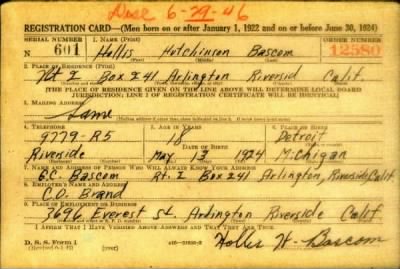 Disc 6-29-46
REGISTRATION CARD—(Men born on or after January 1, 1922 and on or before June 30, 1924)
SERIAL NUMBER 1. NAME (Print) ORDER NUMBER
N 601 Hollis Hutchinson Bascom 12580
(First) (Middle) (Last)
2. PLACE OF RESIDENCE (Print)
Rt 2 Box 241 Arlington Riverside Calif.
[THE PLACE OF RESIDENCE GIVEN ON THE LINE ABOVE WILL DETERMINE LOCAL BOARD
JURISDICTION; LINE 2 OF REGISTRATION CERTIFICATE WILL BE IDENTICAL]
3. MAILING ADDRESS
Same
4. TELEPHONE 5. AGE IN YEARS 6. PLACE OF BIRTH
9779-R5 18 Detroit
DATE OF BIRTH
Riverside May 13 1924 Michigan
7. NAME AND ADDRESS OF PERSON WHO WILL ALWAYS KNOW YOUR ADDRESS
G.C. Bascom Rt. 2 Box 241 Arlington, Riverside Calif.
8. EMPLOYER'S NAME AND ADDRESS
C.O. Brand
9. PLACE OF EMPLOYMENT OR BUSINESS
3696 Everest St. Arlington Riverside Calif
I AFFIRM THAT I HAVE VERIFIED ABOVE ANSWERS AND THAT THEY ARE TRUE.
D. S. S. Form 1
Hollis H. Bascom